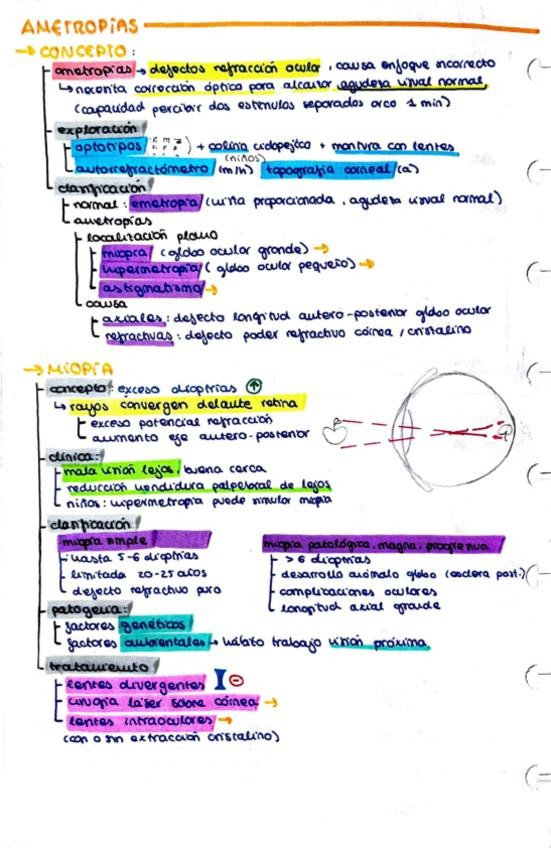 AMETROPÍAS
→ CONCEPTO:
ametropías → defectos refracción ocular, causa enfoque incorrecto
↳ necesita corrección óptica para alcanzar agudeza visual normal
(capacidad percibir dos estímulos separados arco 1 min)
exploración
optotipos + colirio ciclopejico + montura con lentes
(niños)
autorrefractómetro (m/h) topografía corneal (a)
clasificación
normal: emetropía (vista proporcionada, agudeza visual normal)
ametropías
localización plano
miopía (globo ocular grande) →
hipermetropía (globo ocular pequeño) →
astigmatismo →
causa
axiales: defecto longitud antero-posterior globo ocular
refractivas: defecto poder refractivo córnea / cristalino
→ MIOPÍA
concepto: exceso dioptrías ↑
↳ rayos convergen delante retina
exceso potencial refracción
aumento eje antero-posterior
clínica:
mala visión lejos, buena cerca
reducción hendidura palpebral de lejos
niños: hipermetropía puede simular miopía
clasificación
miopía simple
hasta 5-6 dioptrías
limitada 20-25 años
defecto refractivo puro
miopía patológica, magna, progresiva
> 6 dioptrías
desarrollo anómalo globo (esclera post.)
complicaciones oculares
longitud axial grande
patogenia:
factores genéticos
factores ambientales → hábito trabajo visión próxima
tratamiento
lentes divergentes ⊖
cirugía láser sobre córnea →
lentes intraoculares →
(con o sin extracción cristalino)